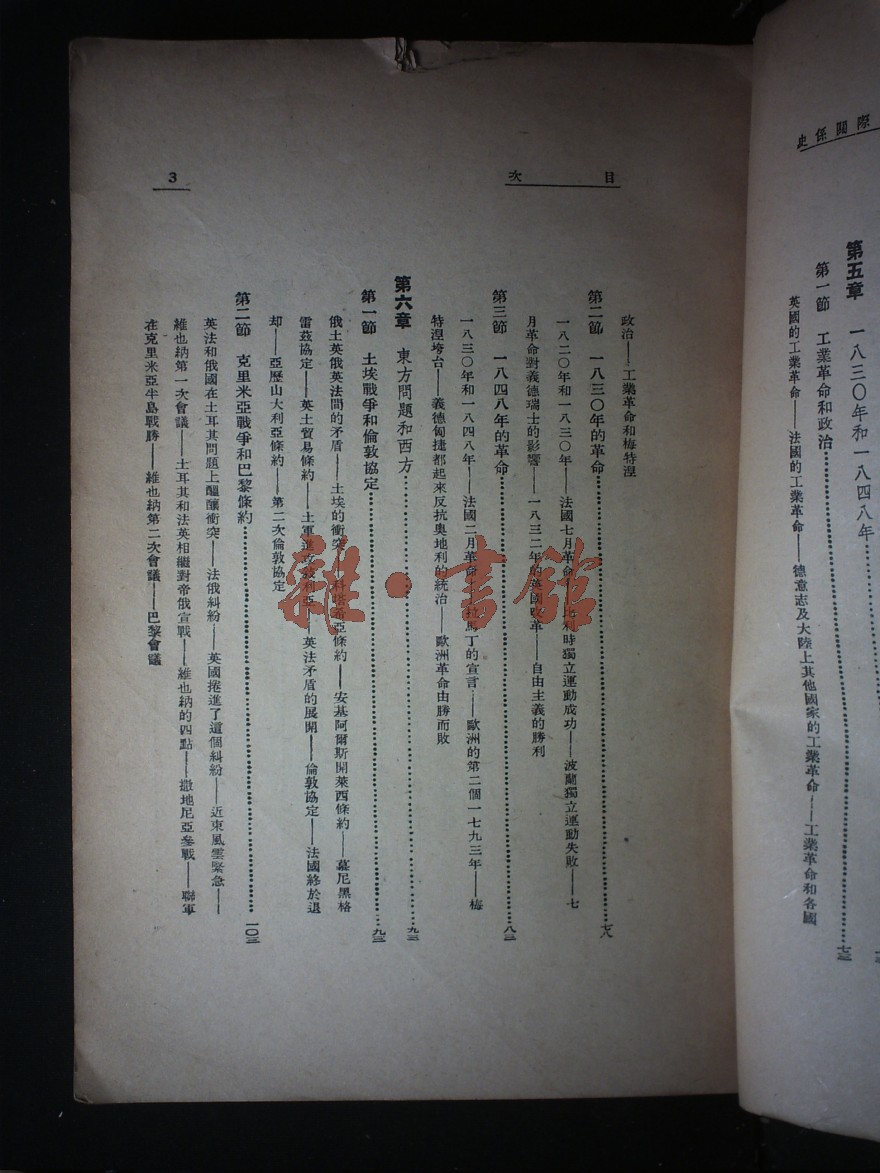 際關係史
第五章 一八三〇年和一八四八年
第一節 工業革命和政治⋯⋯七三
英國的工業革命——法國的工業革命——德意志及大陸上其他國家的工業革命——工業革命和各國
目次
3
政治——工業革命和梅特涅
第二節 一八三〇年的革命⋯⋯七八
一八二〇年和一八三〇年——法國七月革命——比利時獨立運動成功——波蘭獨立運動失敗——七
月革命對義德瑞士的影響——一八三二年的英國改革——自由主義的勝利
第三節 一八四八年的革命⋯⋯八三
一八三〇年和一八四八年——法國二月革命——拉馬丁的宣言——歐洲的第二個一七九三年——梅
特涅垮台——義德匈捷都起來反抗奧地利的統治——歐洲革命由勝而敗
第六章 東方問題和西方⋯⋯九三
第一節 土埃戰爭和倫敦協定⋯⋯九三
俄土英俄英法間的矛盾——土埃的衝突——科塔希亞條約——安基阿爾斯開萊西條約——慕尼黑格
雷茲協定——英土貿易條約——土軍進攻敍利亞——英法矛盾的展開——倫敦協定——法國終於退
却——亞歷山大利亞條約——第二次倫敦協定
第二節 克里米亞戰爭和巴黎條約⋯⋯一〇三
英法和俄國在土耳其問題上醞釀衝突——法俄糾紛——英國捲進了這個糾紛——近東風雲緊急——
維也納第一次會議——土耳其和法英相繼對帝俄宣戰——維也納的四點——撒地尼亞參戰——聯軍
在克里米亞半島戰勝——維也納第二次會議——巴黎會議
雜·書館